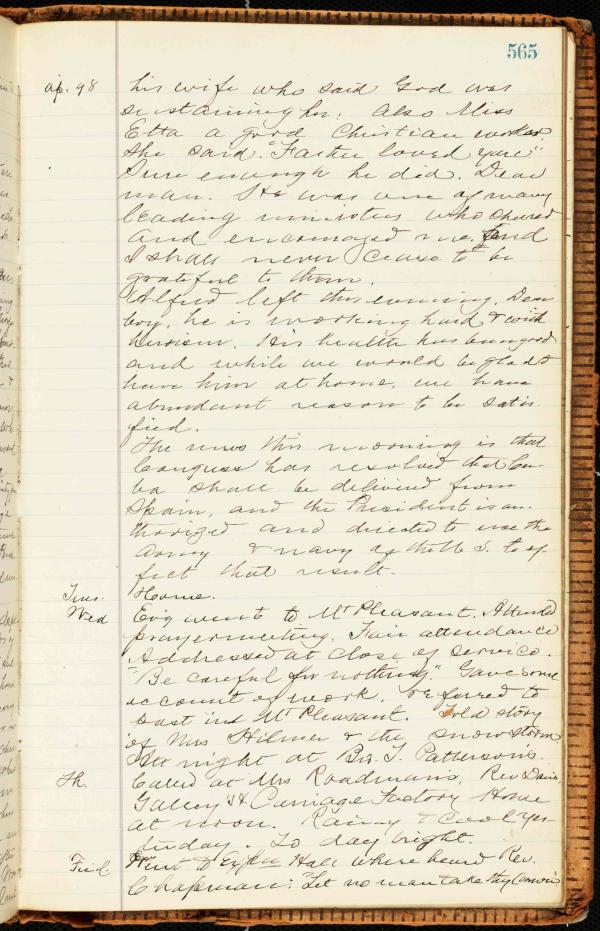 565
ap. 98 his wife who said God was
sustaining her. Also Miss
Etta a good Christian worker
She said. "Father loved you"
Sure enough he did. Dear
man. He was one of many
leading ministers who cheered
and encouraged me. And
I shall never cease to be
grateful to them.
Alfred left this evening. Dear
boy, he is working hard & with
heroism. His health has been good
and while we would be glad to
have him at home, we have
abundant reason to be satis-
fied.
The news this morning is that
Congress has resolved that Cu-
ba shall be delivered from
Spain, and the President is au-
thorized and directed to use the
Army & navy of the U. S. to ef-
fect that result.
Tues. Home.
Wed Ev'g went to Mt Pleasant. Attended
prayermeeting. Fair attendance
Addressed at close of service.
"Be careful for nothing." Gave some
account of work, referred to
past in Mt Pleasant. Told story
of Mrs Hilmer & the snow storm
All night at Bro. T. Patterson's.
Th. Called at Mrs Roadman's, Rev Davis,
Carriage Factory Home
at noon. Rainy & cool yes-
terday. To day bright.
Frid. Went to Hall where heard Rev.
Chapman: "Let no man take thy crown